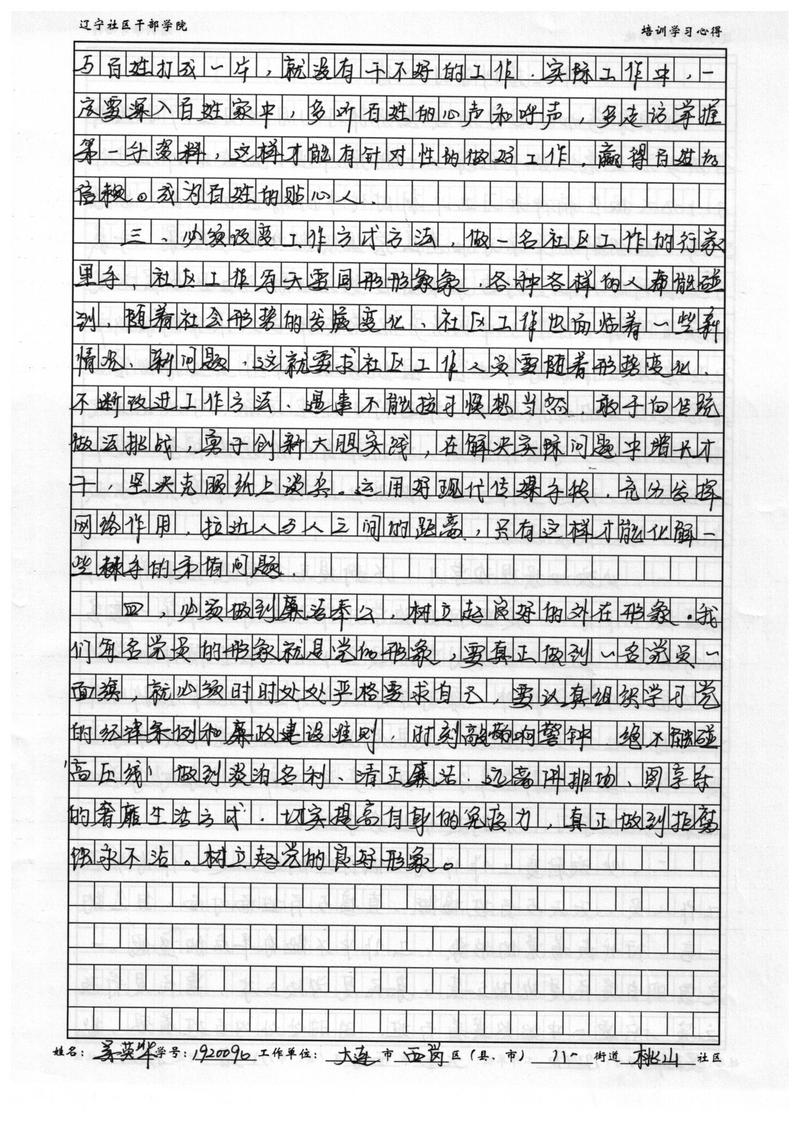 辽宁社区干部学院
培训学习心得
与百姓打成一片，就没有干不好的工作．实际工作中，一
定要深入百姓家中，多听百姓的心声和呼声，多走访掌握
第一手资料，这样才能有针对性的做好工作，赢得百姓的
信赖。成为百姓的贴心人．
三、必须改变工作方式方法，做一名社区工作的行家
里手，社区工作每天要面形形象象，各种各样的人都能碰
到，随着社会形势的发展变化、社区工作也面临着一些新
情况、新问题．这就要求社区工作人员要随着形势变化、
不断改进工作方法．遇事不能按习惯想当然，敢于向传统
做法挑战，勇于创新大胆实践，在解决实际问题中增长才
干，坚决克服纸上谈兵。运用好现代传媒手段，充分发挥
网络作用，拉近人与人之间的距离，只有这样才能化解一
些棘手的矛盾问题．
四，必须做到廉洁奉公，树立起良好的外在形象．我
们每名党员的形象就是党的形象，要真正做到一名党员一
面旗，就必须时时处处严格要求自己，要认真组织学习党
的纪律条例和廉政建设准则，时刻敲响警钟，绝不触碰
“高压线”做到淡泊名利、清正廉洁、远离讲排场、图享乐
的奢靡生活方式．切实提高自身的免疫力，真正做到拒腐
蚀永不沾。树立起党的良好形象。
姓名： 英华 学号：192009 工作单位： 大连 市 西岗 区（县、市） 八一 街道 桃山 社区